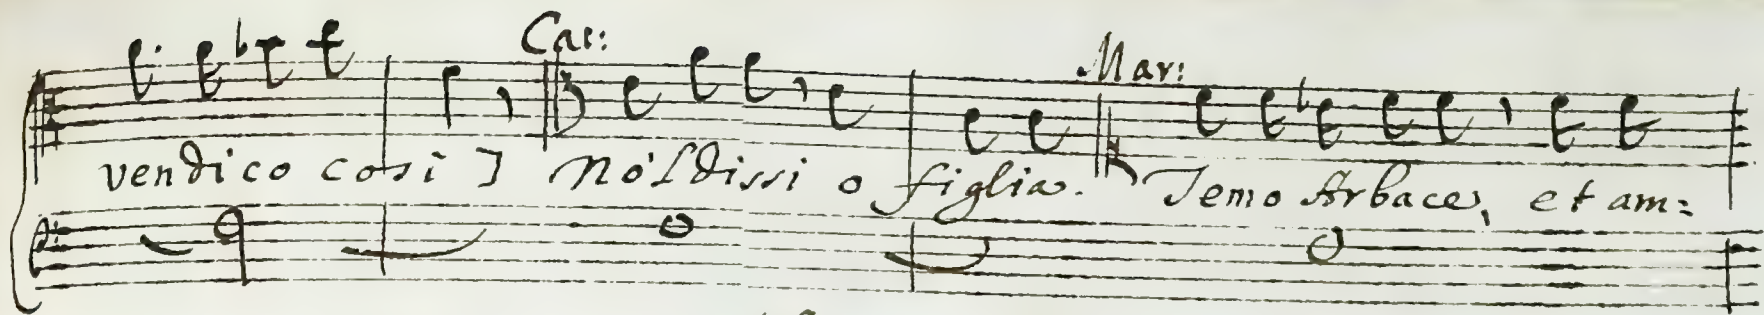 Cat: Mar:
vendico così] Nol dissi o figlia. Temo Arbace, et am=